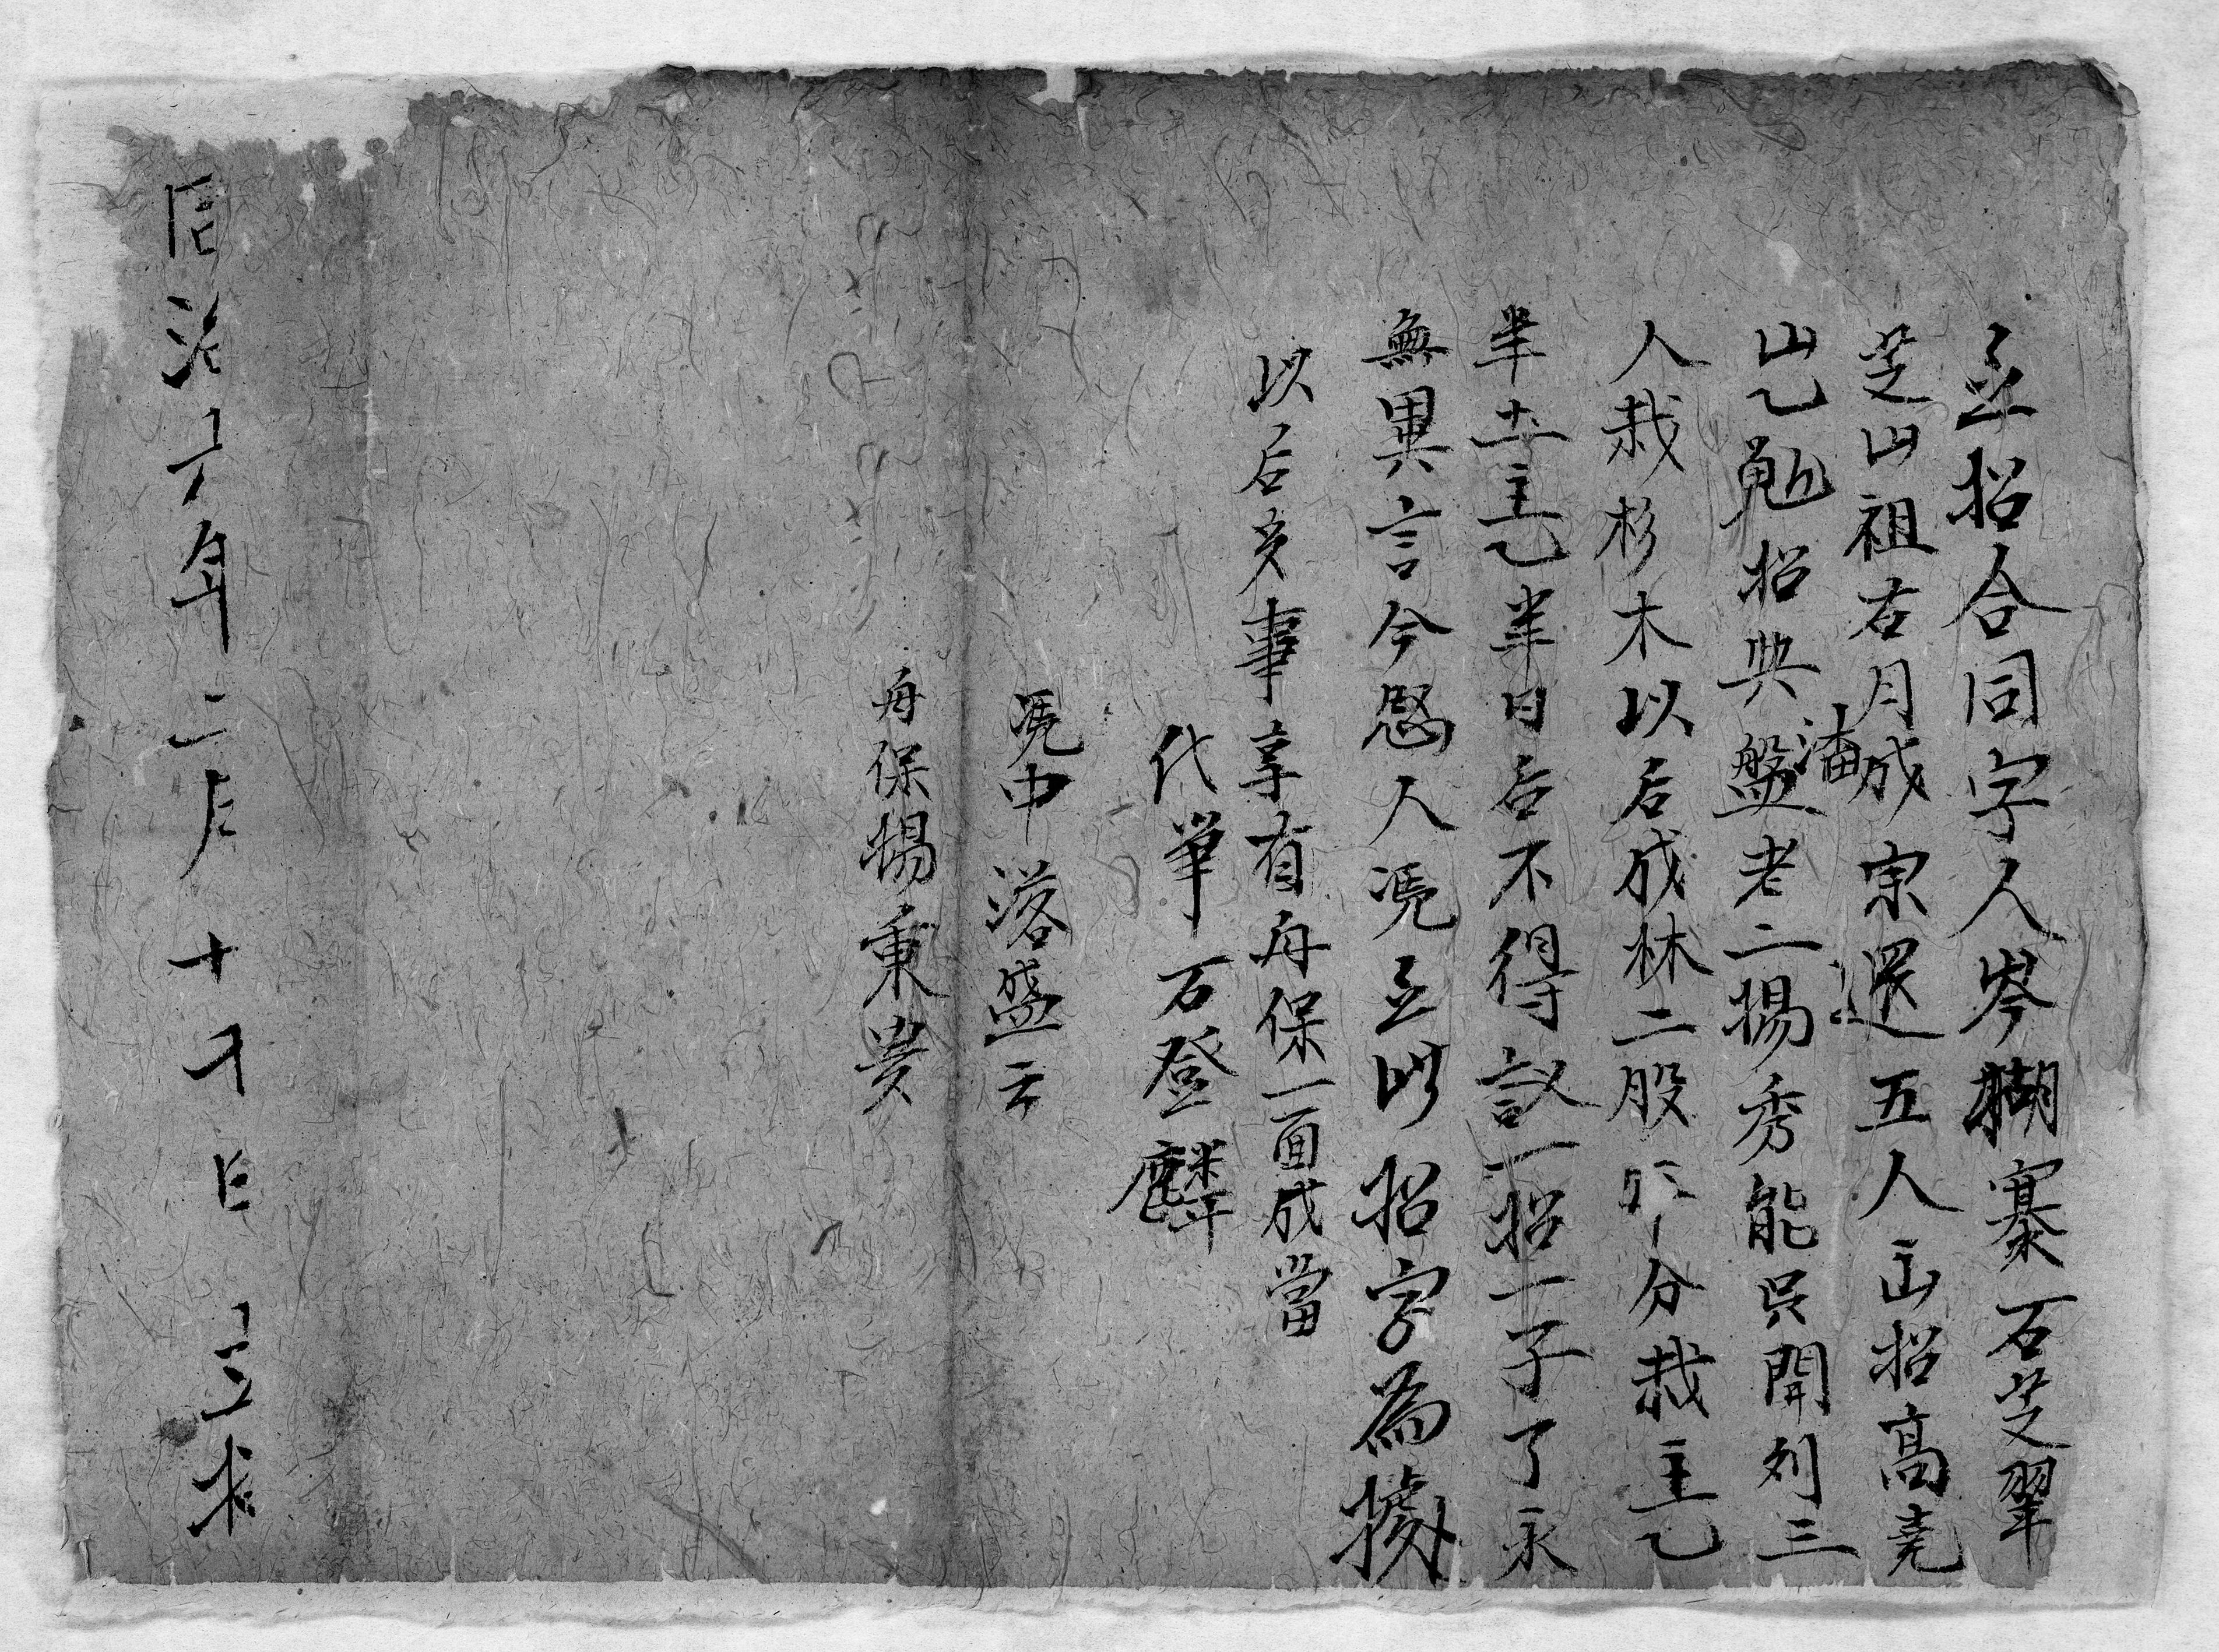 立招合同字人岑𦟛寨石芝翠
芝山祖右月成宗還五人亙招高堯
山乙𠒎招與盤老二揚秀能吳開列三
湳
人栽杉木以后成林二股分栽主乙
半土主乙半日后不得議一招一子了永
無異言今慇人凴立此招字為據
以后多事享有舟保一面成當
代筆石登麟
凴中落盛云
舟保揚秉貴
同治六年二月十八日立招